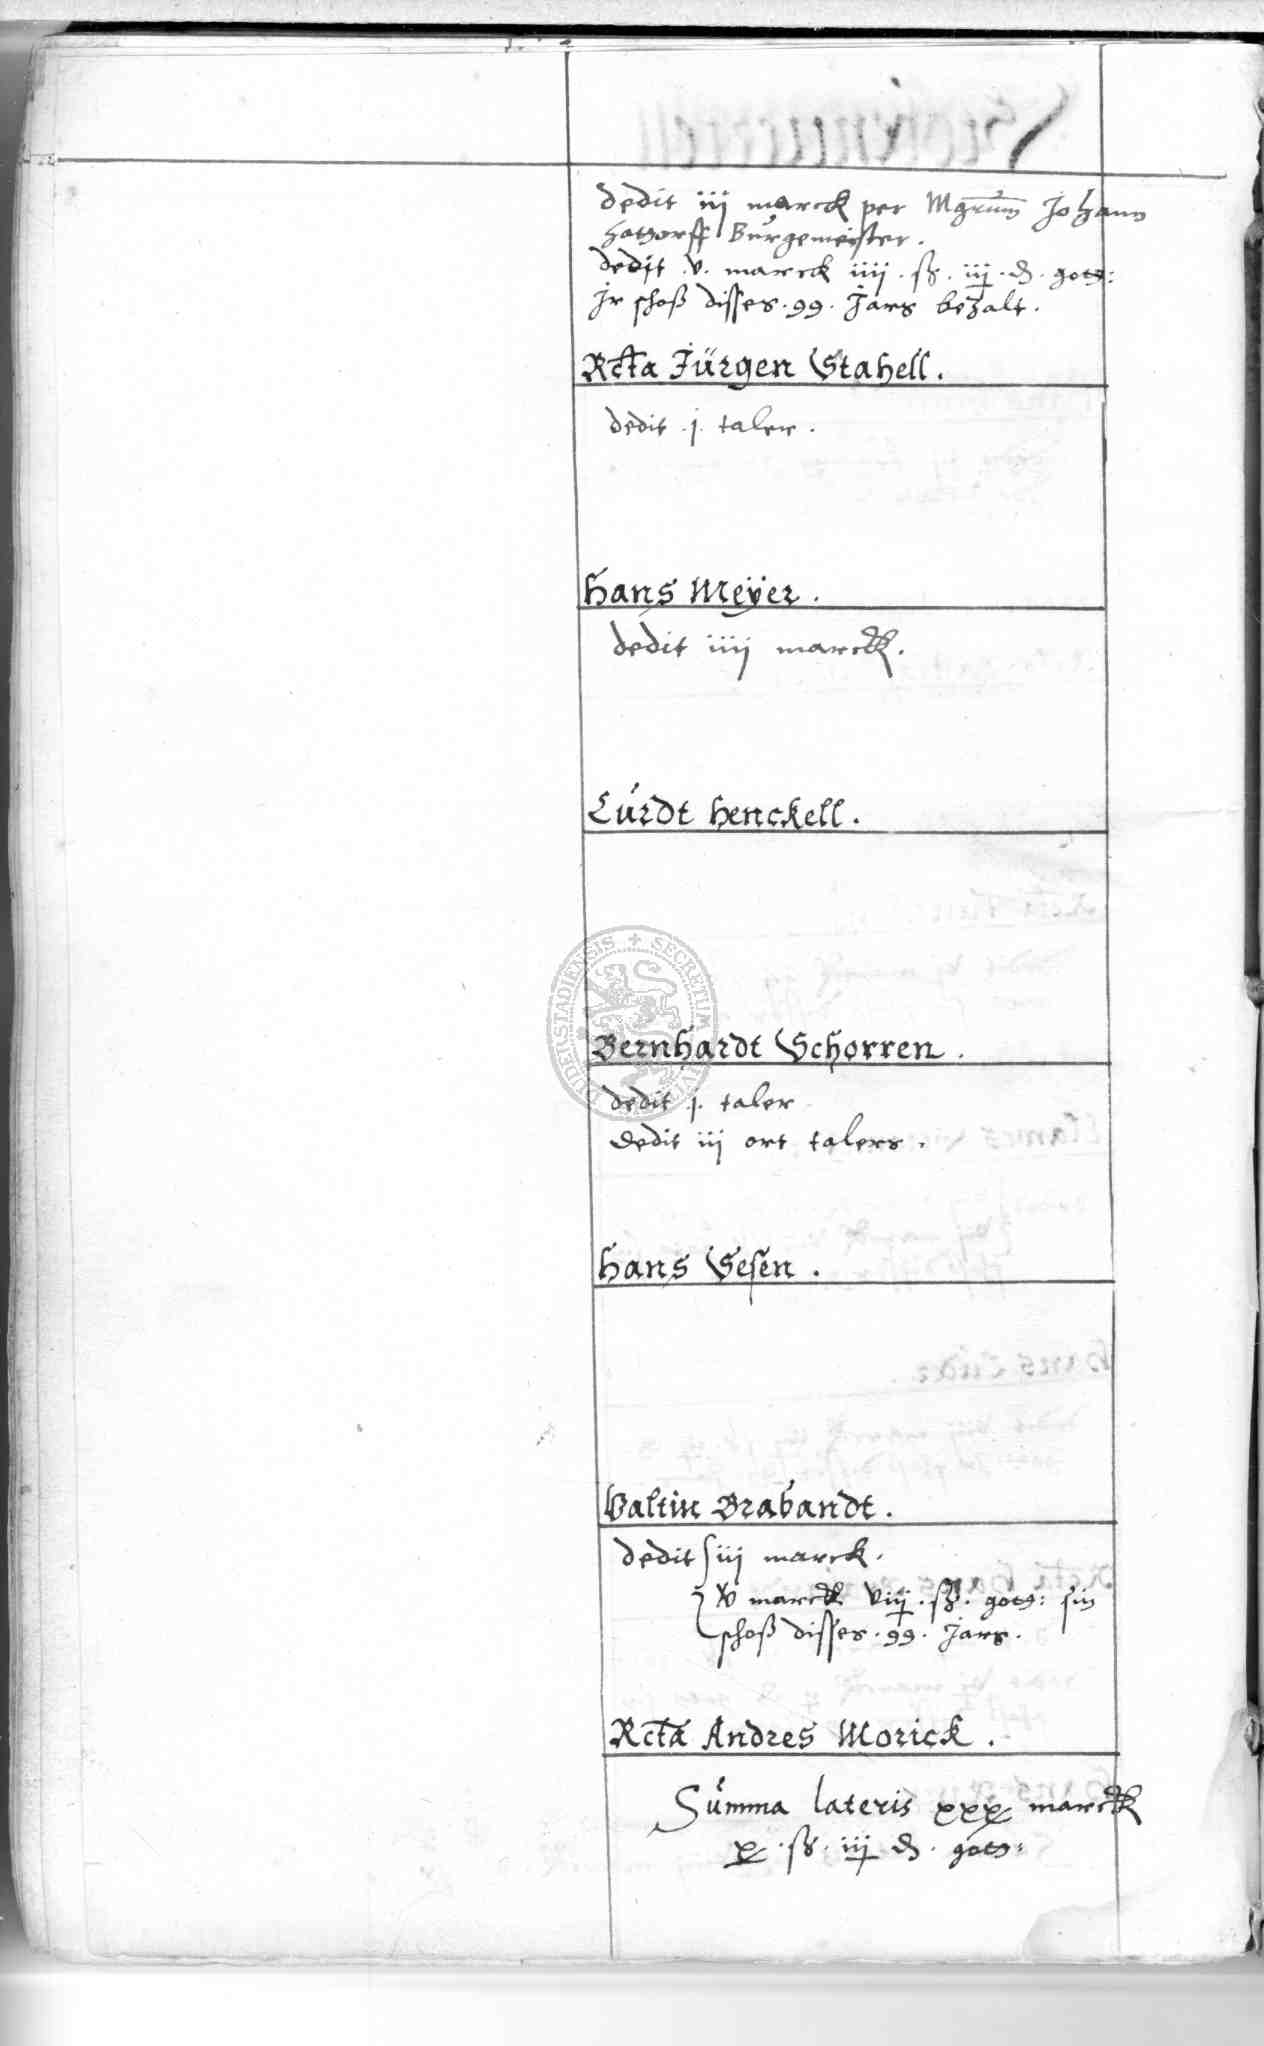 dedit iij marck per Mgrum Johann
Hatzorff Bürgemeister.
dedit .v. marck iiij . ß . iij . ₰ . gotz:
Jr schoß disses . 99 . Jars bezalt .
Rcta Jürgen Stahell .
dedit .j. taler .
Hans Meÿer .
dedit iiij marck .
Cúrdt Henckell .
Bernhardt Schorren .
dedit .j. taler
dedit iij ort talers .
Hans Sesen .
Valtin Brabandt .
dedit iij marck .
v marck viij . ß . gotz: sin
schoß disses . 99 . Jars .
Rcta Andres Morick .
Summa lateris xxx marck
x . ß . iij ₰ . gotz:
DUDERSTADIENSIS + SECRETUM CIVITATIS